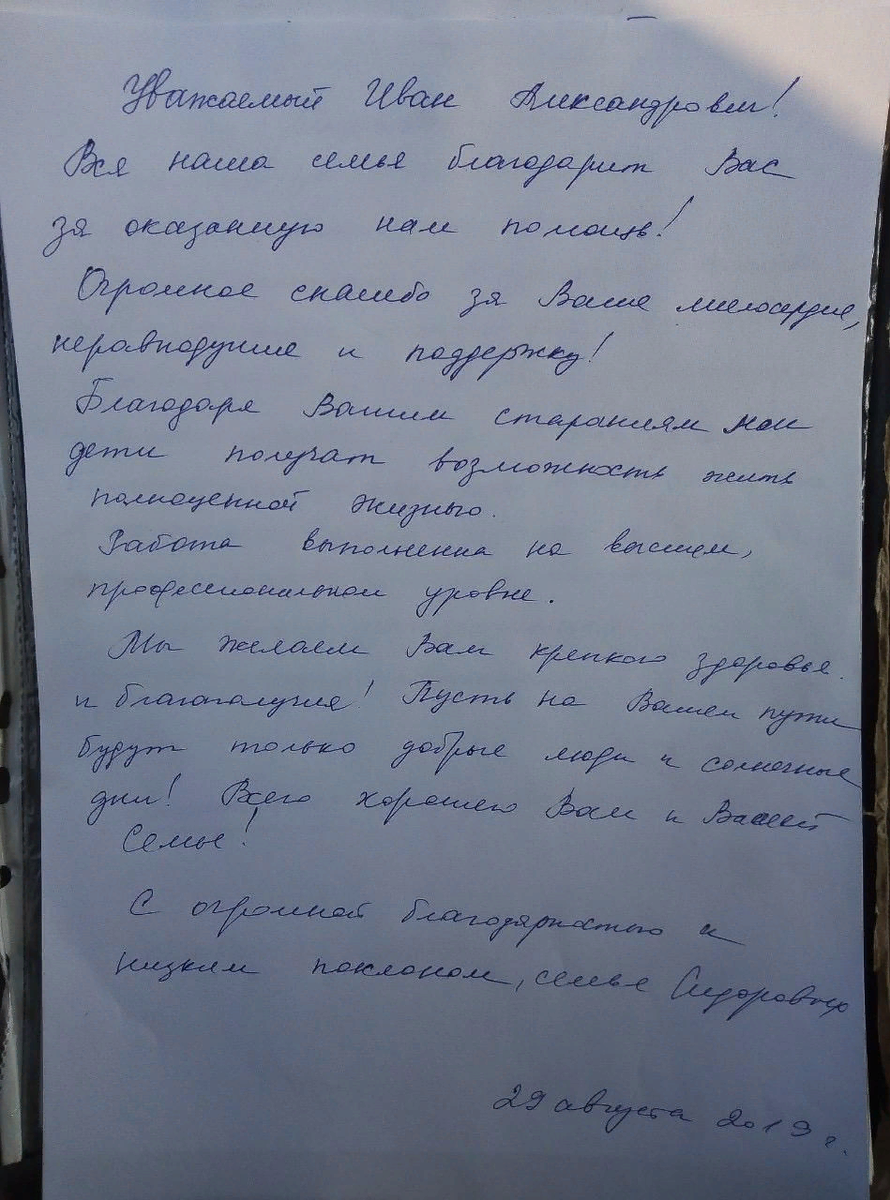 Уважаемый Иван Александрович!
Вся наша семья благодарит Вас
за оказанную нам помощь!
Огромное спасибо за Ваше милосердие,
неравнодушие и поддержку!
Благодаря Вашим стараниям мои
дети получат возможность жить
полноценной жизнью.
Работа выполнена на высшем,
профессиональном уровне.
Мы желаем Вам крепкого здоровья
и благополучия! Пусть на Вашем пути
будут только добрые люди и солнечные
дни! Всего хорошего Вам и Вашей
Семье!
С огромной благодарностью и
низким поклоном, семья Сидоровых
29 августа 2019 г.